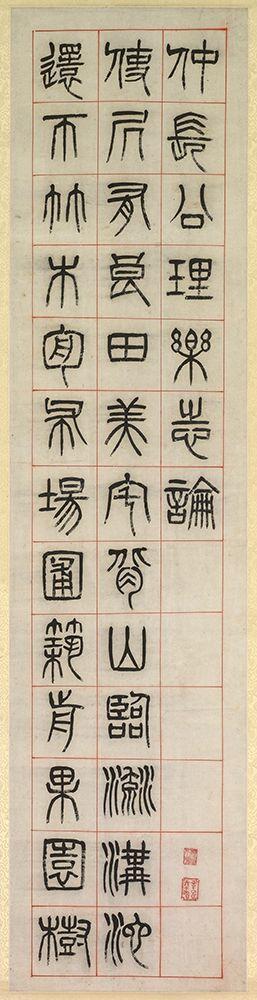 仲長公理樂志論
使居有良田美宅背山臨流溝池
還帀竹木周布場圃築前果園樹